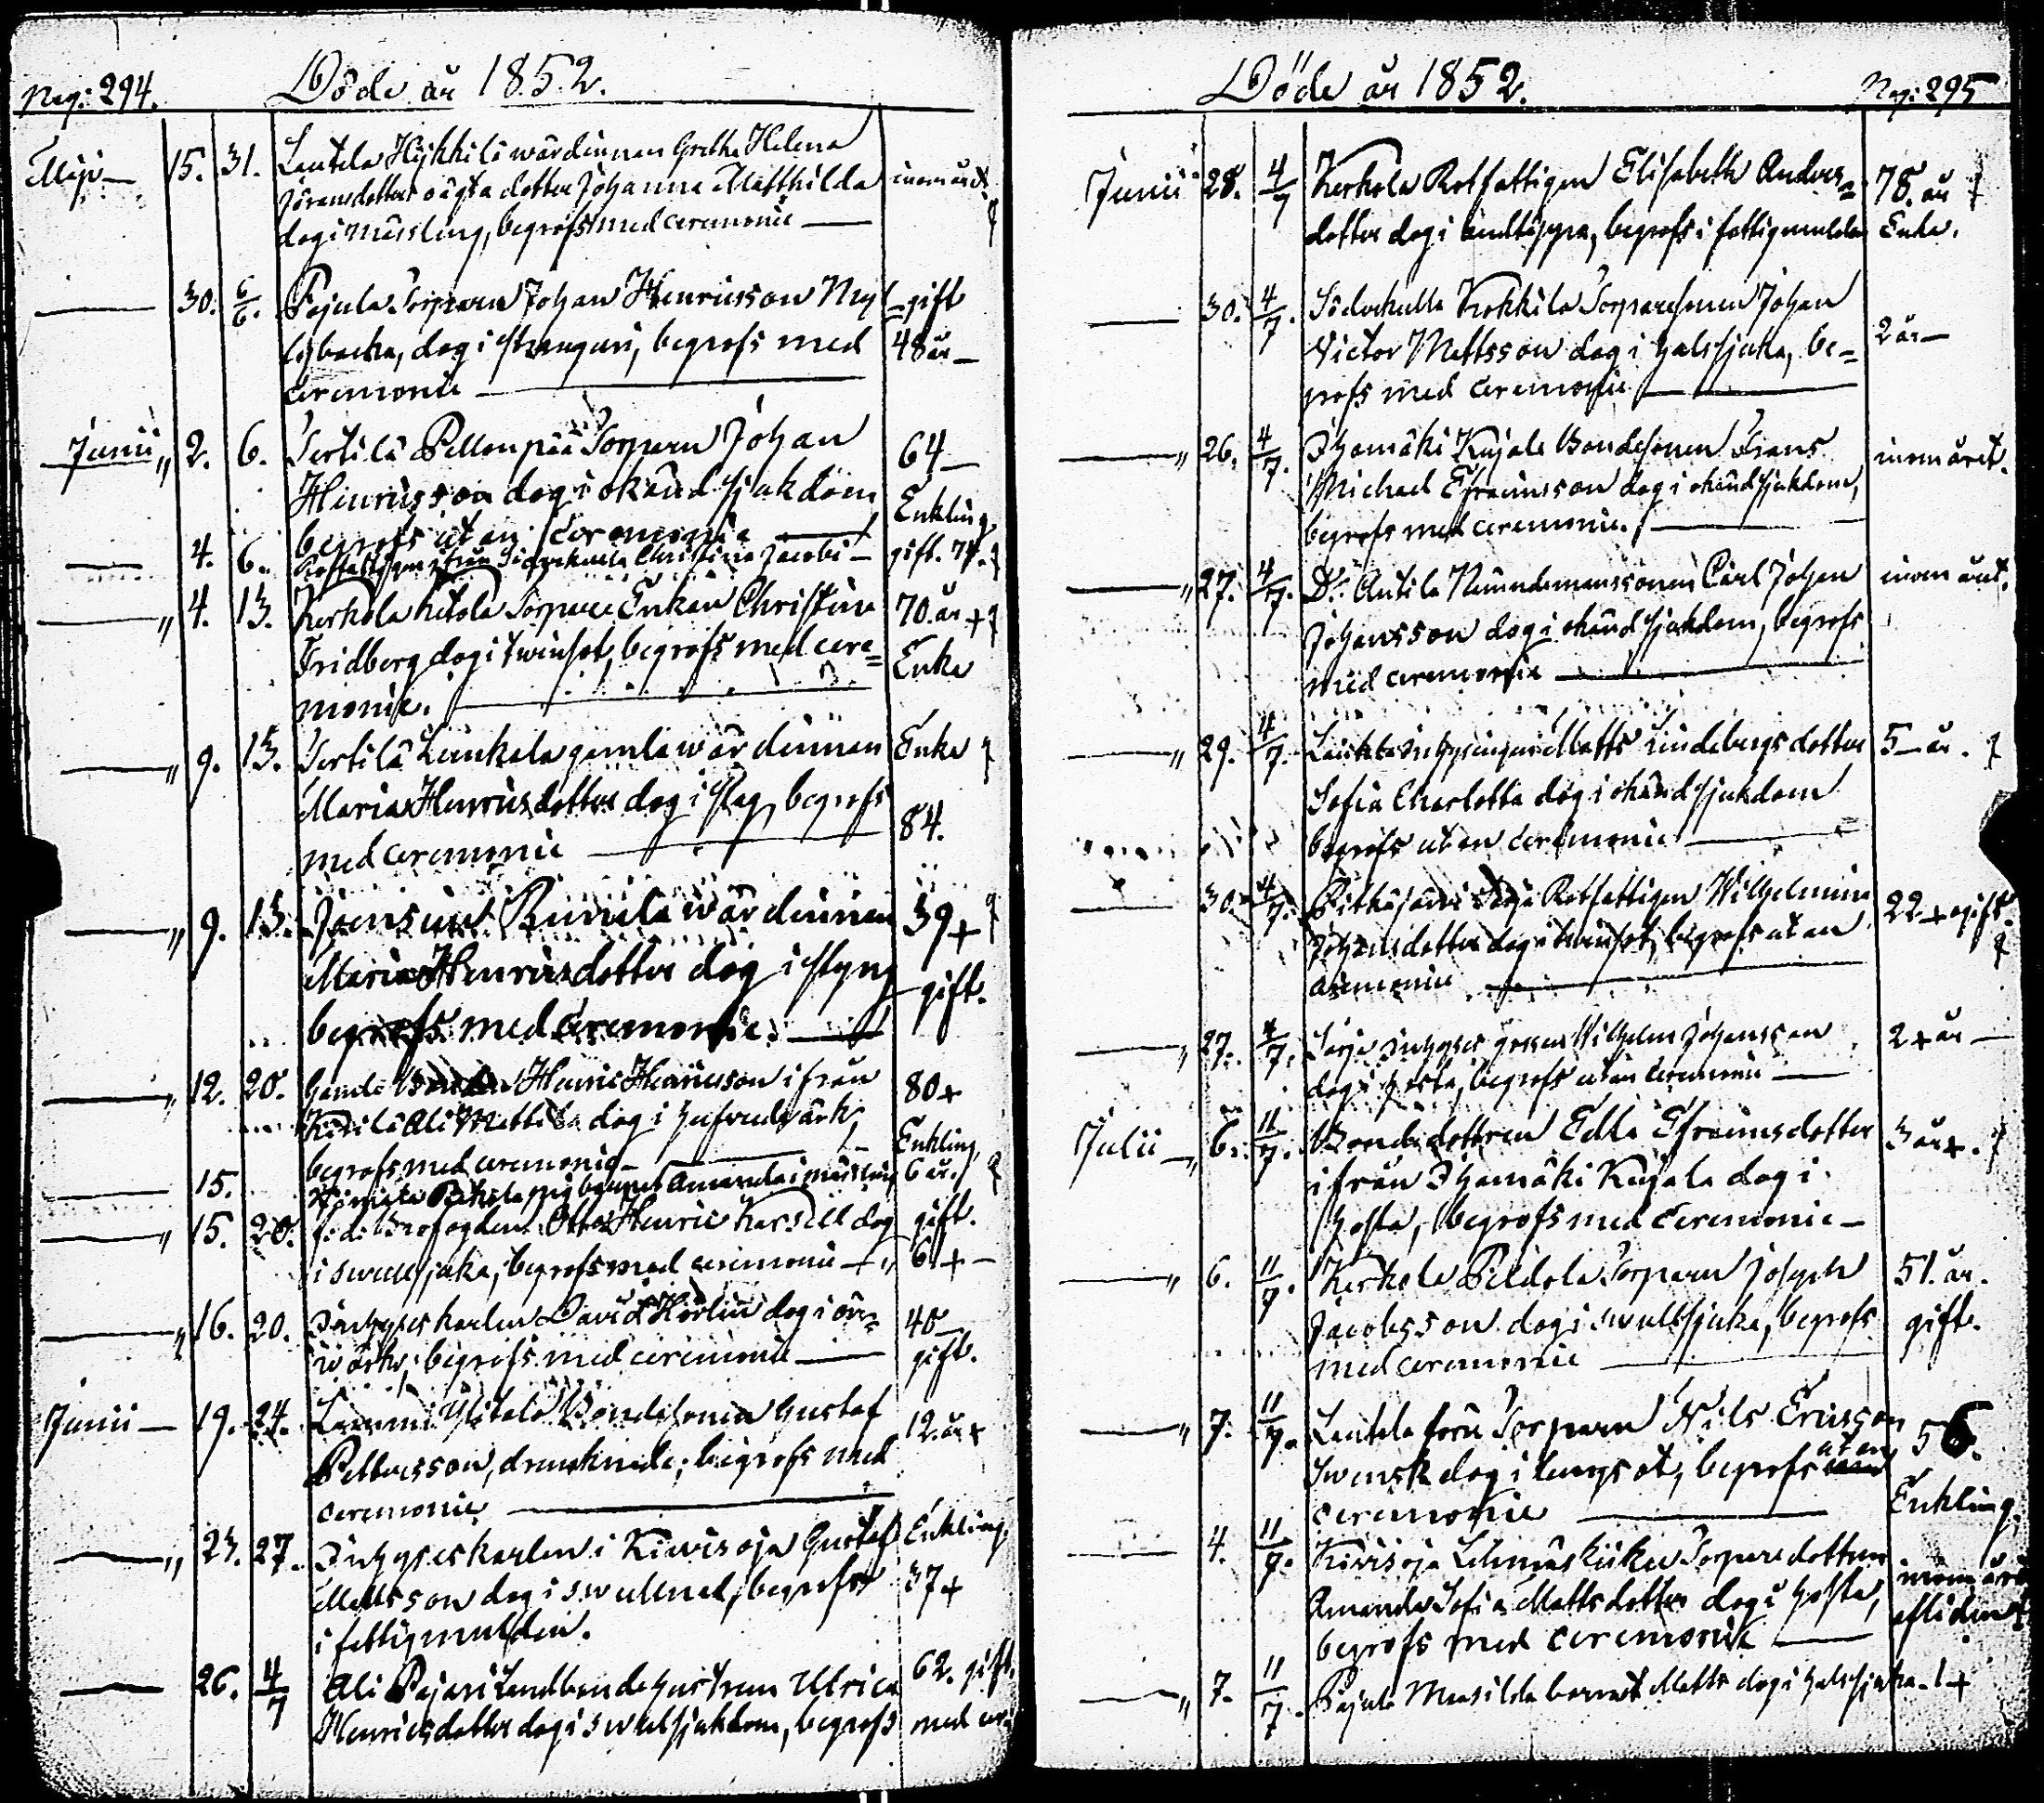 Pag: 294. Döde år 1852.
Maji — 15. 31. Lautela Hykkilä wärdinnan Gretha Helena
Jöransdotters oägta dotter Johanna Mathilda inom året
dog i mässling, begrofs med ceremonie —
— 30. 6/6. Pajula Torparen Johan Henricsson Nyl= gift
, dog i strangurie, begrofs med 48 år —
ceremonie —
Junii „ 2. 6. Tertilä Pellonpää Torparen Johan 64 —
Henricsson dog i okänd sjukdom Enkling
begrofs utan ceremonie —
— 4. 6. Rotfattigen från Christina Jacobi — gift. 74.
— „ 4. 13. Kerkola Torpare Enkan Christina 70. år +
Fridberg dog i twinsot, begrofs med cere= Enka
monie. —
— „ 9. 13. Tertilä gamla wärdinnan Enka
Maria Henricsdotter dog i slag, begrofs 84.
med ceremonie —
— „ 9. 13. Joensuu wärdinnan 39 +
Maria Henricsdotter dog i styng gift.
begrofs med ceremonie. —
— „ 12. 20. Gamle Bonden Henric Henricsson ifrån 80 +
Ali Mattila dog i hufvudwärk,
begrofs med ceremonie — Enkling,
— 15. Amanda i mässling 6 år.
— „ 15. 20. f: d: Brofogden Otto Henric Karsell dog gift.
i swullsjuka, begrofs med ceremonie — „ 61 + —
— „ 16. 20. Inhyseskarlen David dog i öre= 40 —
wärk, begrofs med ceremonie — gift.
Junii — 19. 24. Lammi Ylitalo Bondesonen Gustaf 12. år +
Pettersson, drunknade, begrofs med
ceremonie —
— „ 23. 27. Inhyseskarlen i Kiwisoja Gustaf Enkling,
Mattsson dog i swullnad, begrofs 37 +
i fattigmullen.
— 26. 4/7 Ali Pajari Landbonde hustrun Ulrica 62. gift.
Henricsdotter dog i swulsjukdom, begrofs med cer:
Döde år 1852. Pag: 295
Junii 28. 4/7 Kerkola Rotfattigen Elisabeth Anders= 78. år
dotter dog i andtäppa, begrofs i fattigmullen Enka.
— 30. 4/7. Söderkulla Kokkila Torparesonen Johan
Victor Mattsson dog i halssjuka, be= 2 år —
grofs med ceremonie —
— „ 26. 4/7. Ihamäki Kujala Bondesonen Frans inom året.
Michael Efraimsson dog i okänd sjukdom,
begrofs med ceremonie. —
— „ 27. 4/7. D:o Antila Nämndemanssonen Carl Johan inom året.
Johansson dog i okänd sjukdom, begrofs
med ceremonie —
— „ 29. 4/7. Lautela Inhysingen Matts Lindebergs dotter 5 — år.
Sofia Charlotta dog i okänd sjukdom
begrofs utan ceremonie —
— 30. 4/7. Pitkäjärvi Rotfattigen Wilhelmina 22 + ogift.
Johansdotter dog i twinsot, begrofs utan
ceremonie —
— „ 27. 4/7. Inhyses gossen Wilhelm Johansson 2 + år —
dog i hosta, begrofs utan ceremonie —
Julii — „ 6. 11/7. Bondedottren Edla Efraimsdotter 3 år +.
ifrån Ihamäki Kujala dog i
hosta, begrofs med ceremonie —
— „ 6. 11/7. Kerkola Torparen Joseph 51. år.
Jacobsson dog i swullsjuka, begrofs gift.
med ceremonie —
— „ 7. 11/7. Lautela Torparen Nils Ericsson 56.
Swensk dog i lungsot, begrofs utan
ceremonie — Enkling.
— 4. 11/7. Kivisoja Torparedottren inom året
Amanda Sofia Mattsdotter dog i hosta, afliden +
begrofs med ceremonie —
— „ 7. 11/7. Pajula barnet Matts dog i halssjuka — 1 +